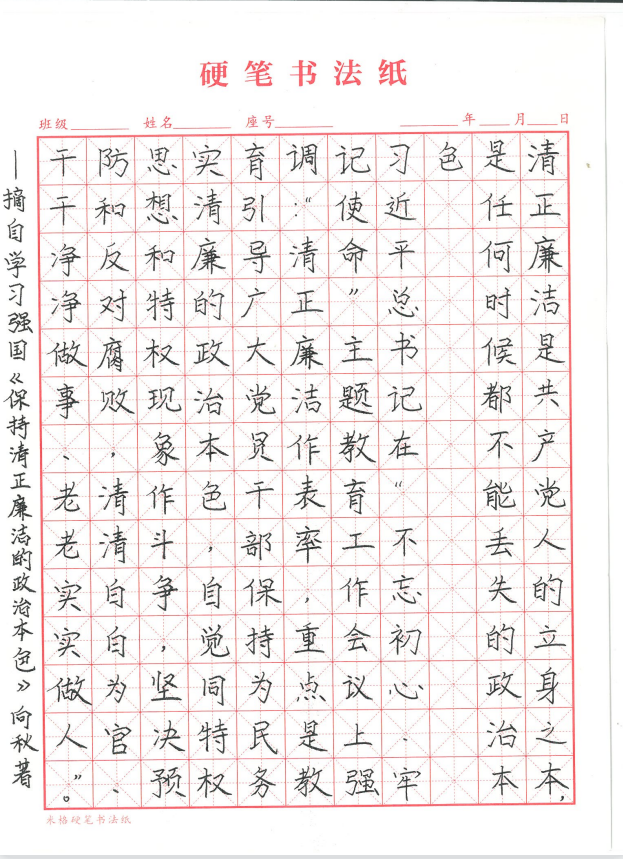 硬笔书法纸
班级 姓名 座号 年 月 日
清正廉洁是共产党人的立身之本,
是任何时候都不能丢失的政治本
色
习近平总书记在“不忘初心、牢
记使命”主题教育工作会议上强
调:“清正廉洁作表率,重点是教
育引导广大党员干部保持为民务
实清廉的政治本色,自觉同特权
思想和特权现象作斗争,坚决预
防和反对腐败,清清白白为官、
干干净净做事、老老实实做人”。
—摘自学习强国《保持清正廉洁的政治本色》向秋著
米格硬笔书法纸